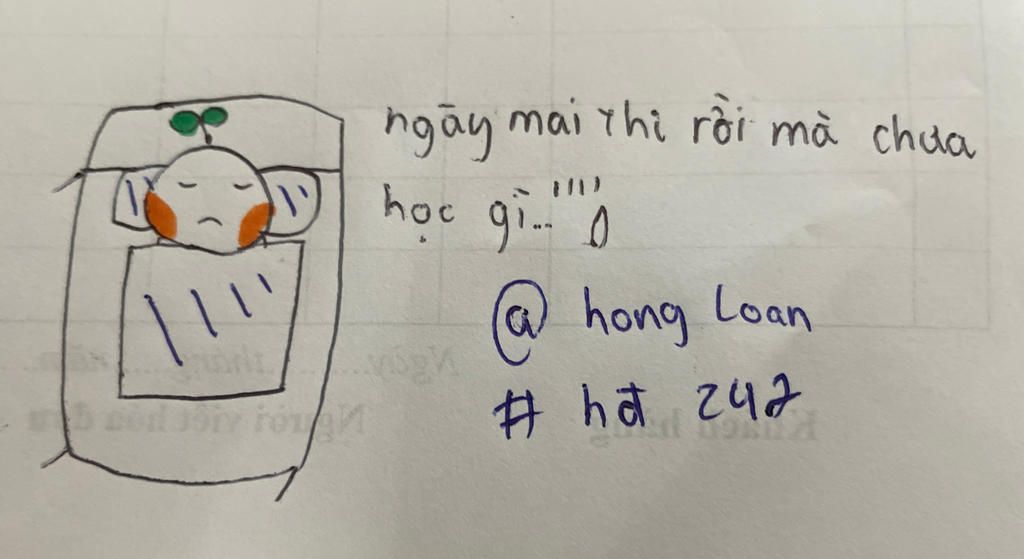 ngày mai thi rồi mà chưa
học gì...
@ hong Loan
# hđ 247
Ngày........tháng......năm....
Khách hàng
Người viết hóa đơn